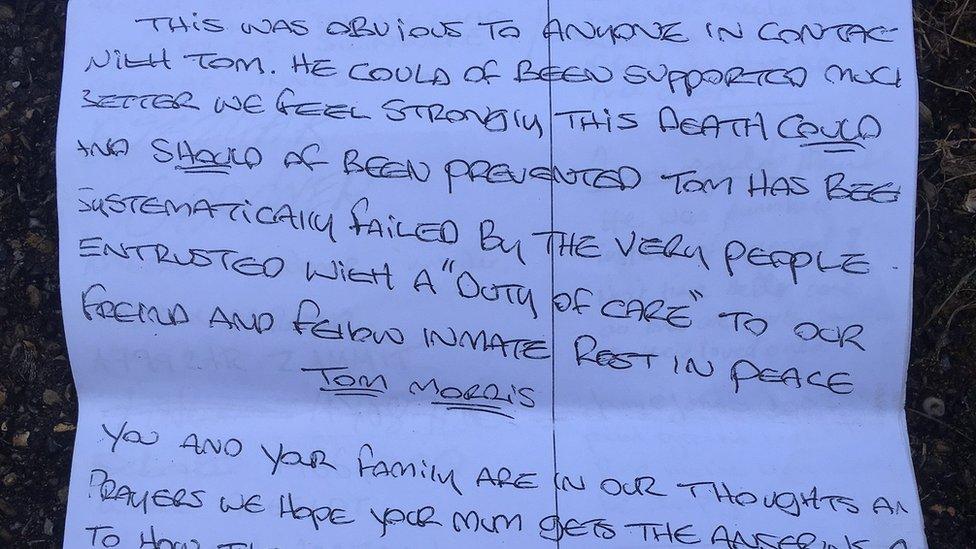 THIS WAS OBVIOUS TO ANYONE IN CONTAC
WITH TOM. HE COULD OF BEEN SUPPORTED MUCH
BETTER WE FEEL STRONGLY THIS DEATH COULD
AND SHOULD OF BEEN PREVENTED TOM HAS BEE
SYSTEMATICALLY FAILED BY THE VERY PEOPLE.
ENTRUSTED WITH A "DUTY OF CARE" TO OUR
FREIND AND FELLOW INMATE REST IN PEACE
TOM MORRIS
YOU AND YOUR FAMILY ARE IN OUR THOUGHTS AN
PRAYERS WE HOPE YOUR MUM GETS THE
TO HOW